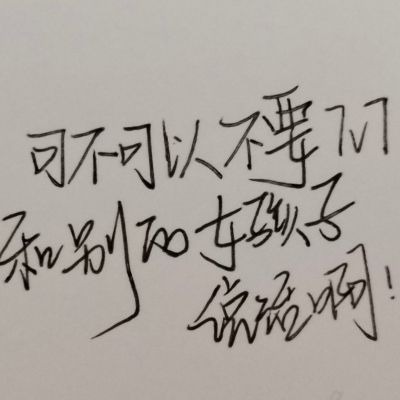 可不可以不要
和别的女孩子
说话啊!